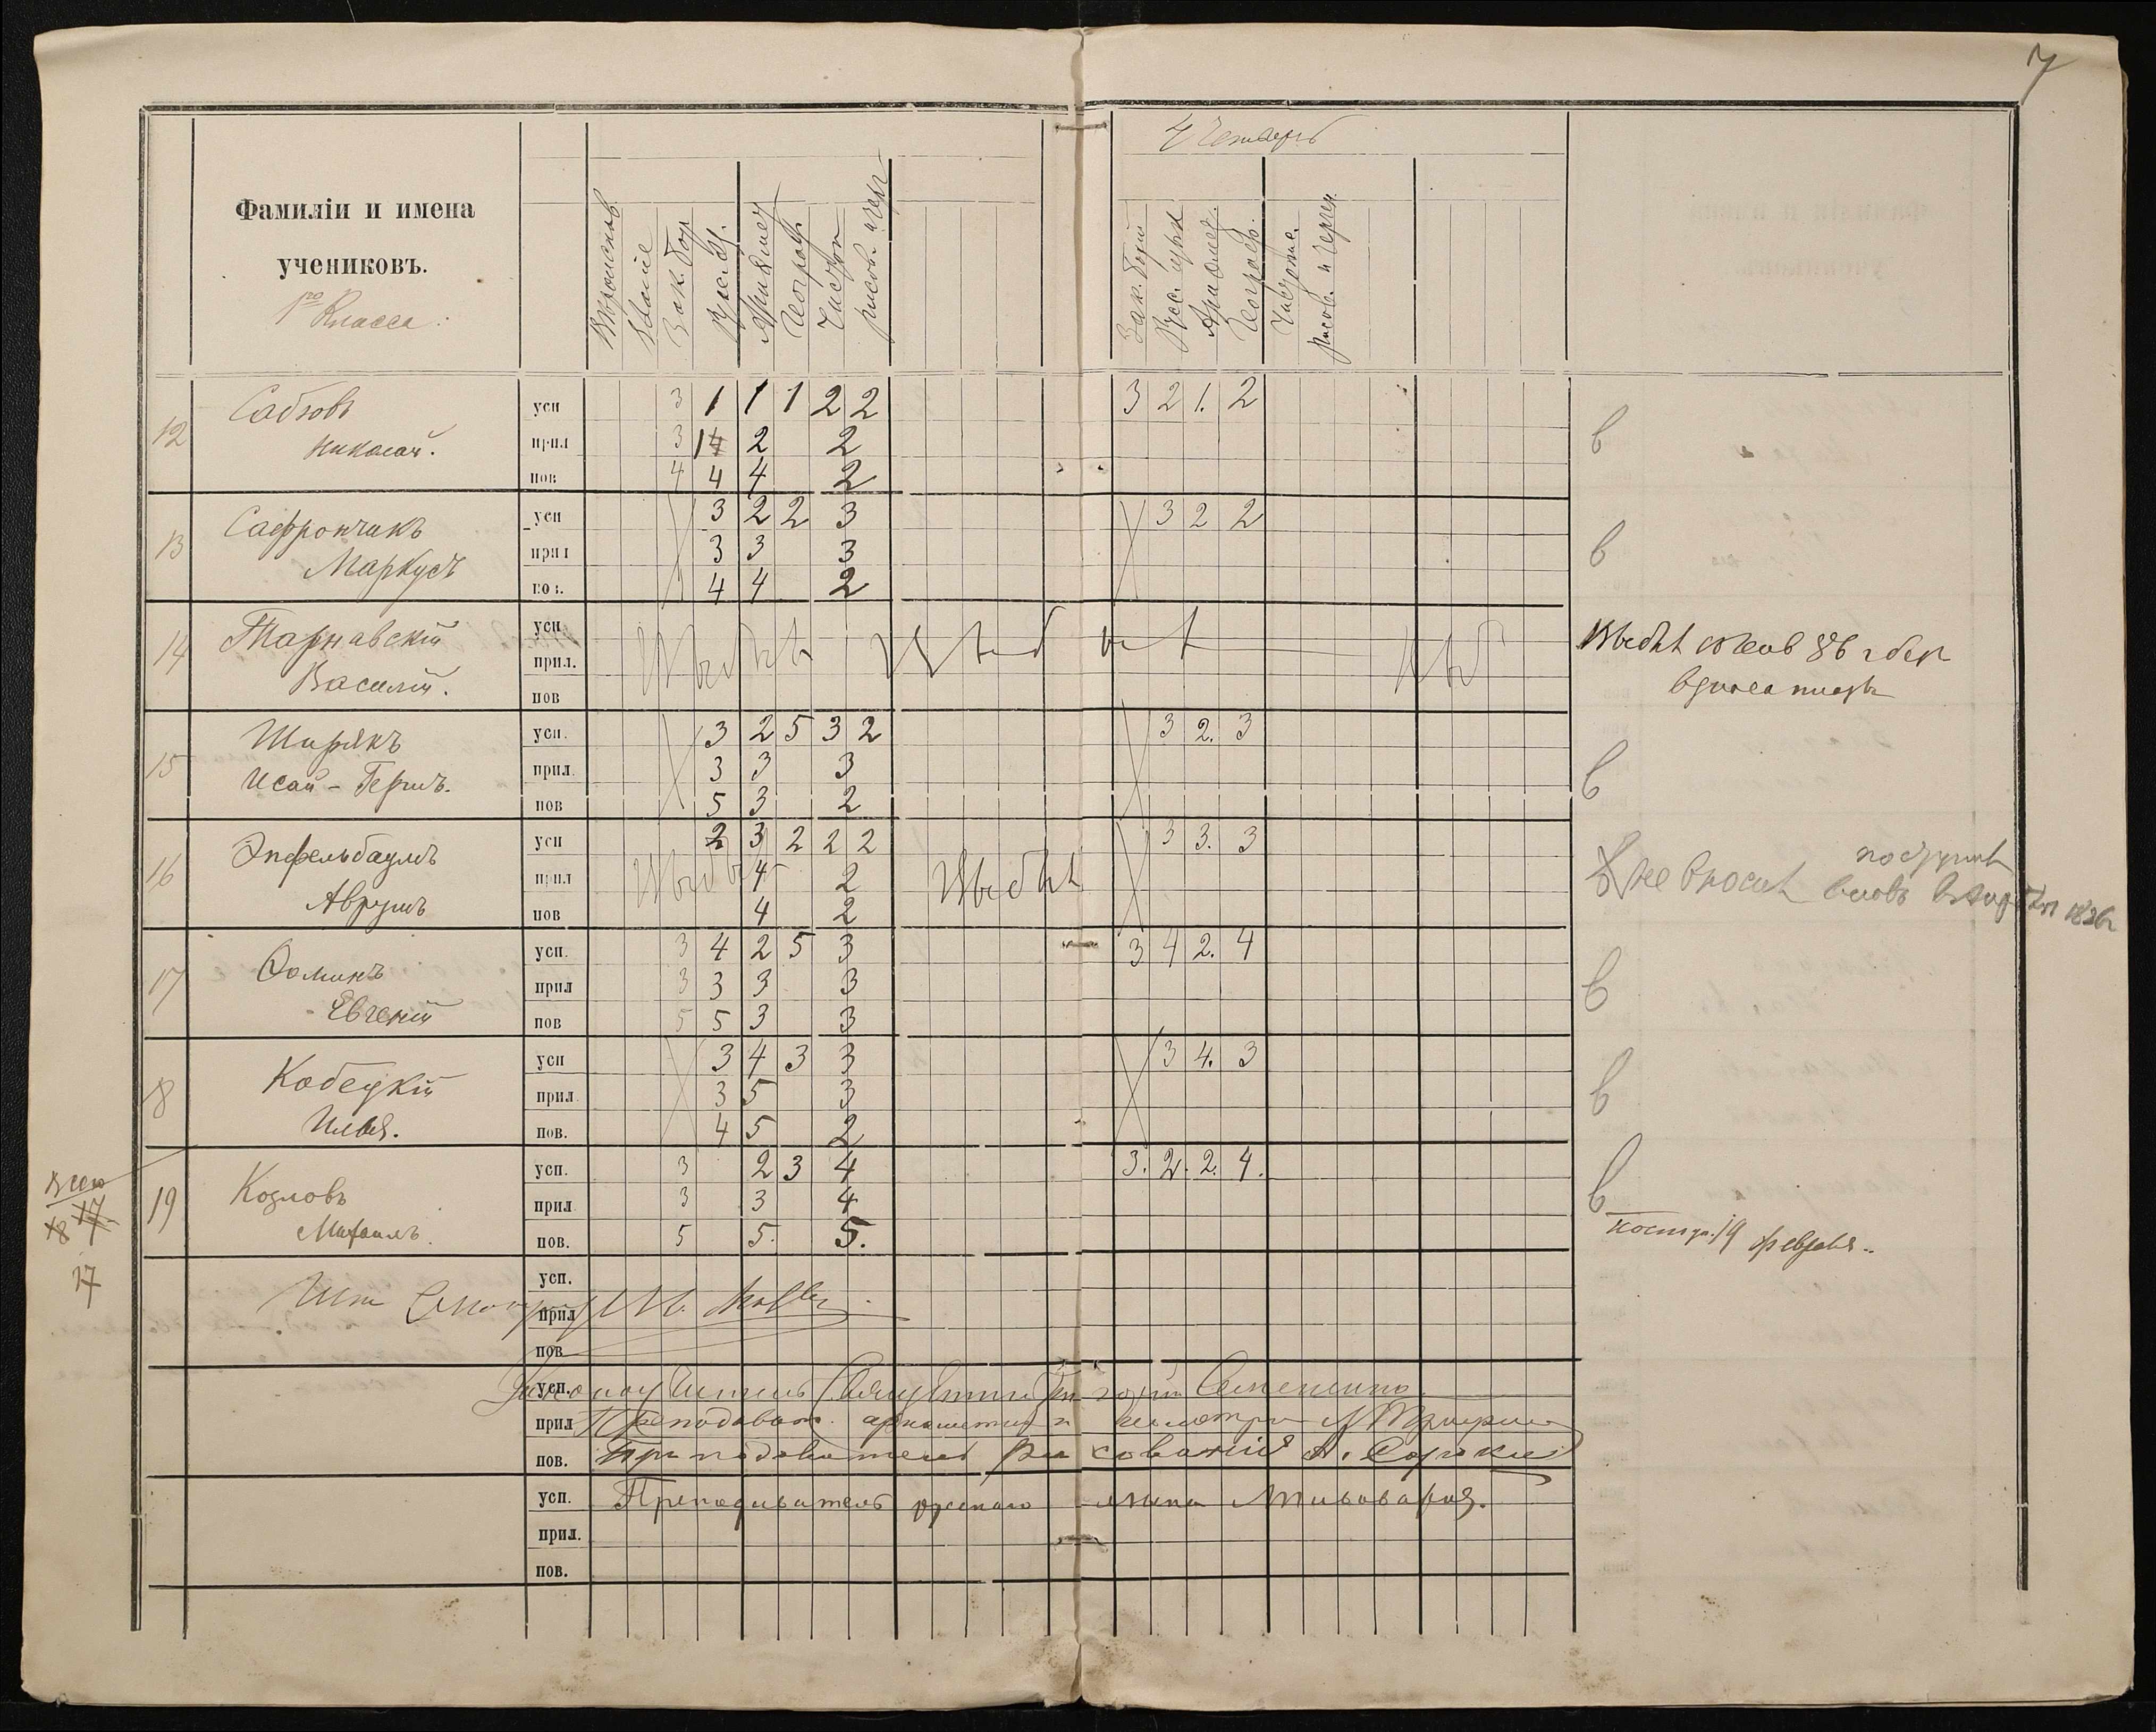 7
4 Четверть
Фамиліи и имена
учениковъ.
1го Класса:
Зак. Бож
Русс. яз.
Арифмет
Географ.
Чистоп
рисов. и черч
Зак. Божій
Русс. язык
Арифмет.
Географ.
Чистопис.
рисов. и черчен.
12
усп 3 1 1 1 2 2 3 2 1. 2
Николай.
прил 3 2 2
в
пов 4 4 4 2
13 Сафрончикъ
усп 3 2 2 3 3 2 2
Маркусъ
прил 3 3 3
в
пов. 4 4 2
14 Тарнавскій
усп
Василій.
прил.
Выбылъ
пов
15 Ширякъ
усп. 3 2 5 3 2 3 2. 3
Исай - Гершъ.
прил. 3 3 3
в
пов 5 3 2
16 Эпфельбаумъ
усп 2 3 2 2 2 3 3. 3
Аврумъ
прил 4 2
Выбылъ
не вносилъ
вновь
пов 4 2
17 Фоминъ
усп. 3 4 2 5 3 3 4 2. 4
Евгеній
прил 3 3 3 3
в
пов 5 5 3 3
18 Кобецкій
усп 3 4 3 3 3 4. 3
Илья.
прил. 3 5 3
в
пов. 4 5 2
Всего
18 17
17
19 Козловъ
усп. 3 2 3 4 3. 2. 2. 4.
Михаилъ.
прил 3 3 4
в
пов. 5 5. 5.
поступ. 19 февраля..
усп.
прил
пов
усп. Законоучитель Священникъ
прил Преподават. арифметики и геометріи
пов. Преподаватель рисованія А. Сорокин
усп. Преподаватель русскаго языка
прил.
пов.